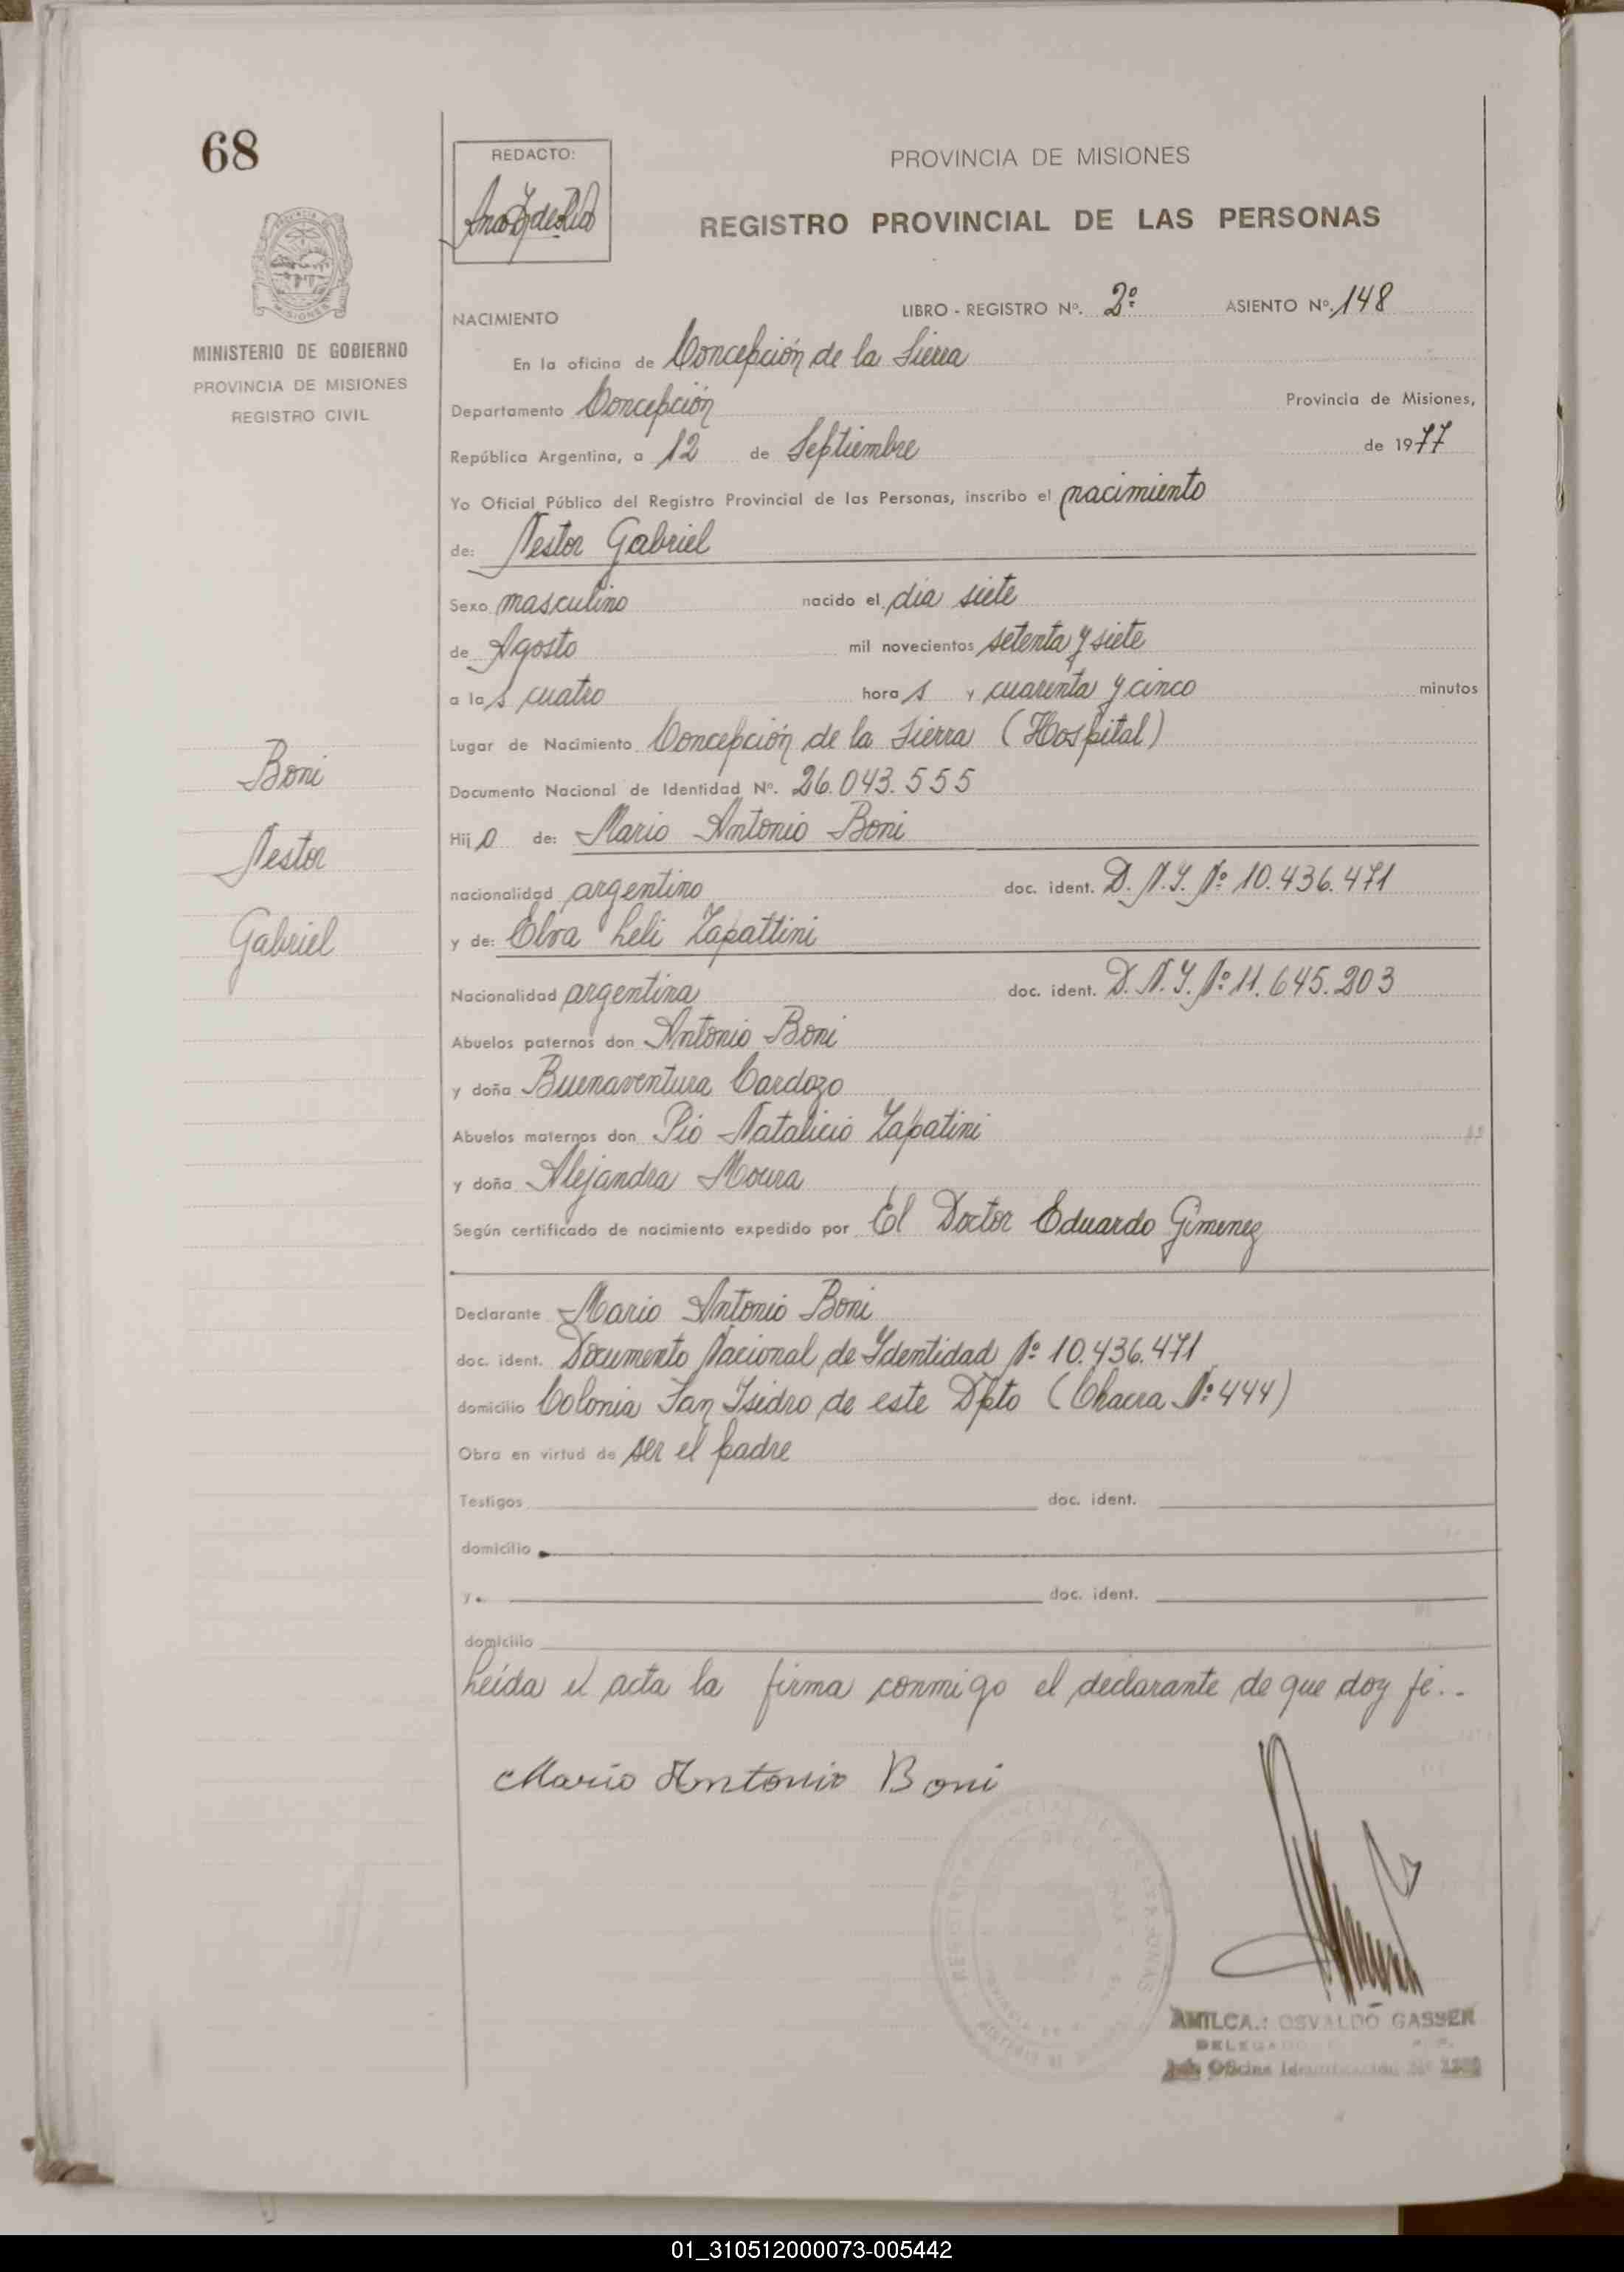 68
REDACTO:
PROVINCIA DE MISIONES
REGISTRO PROVINCIAL DE LAS PERSONAS
MINISTERIO DE GOBIERNO
PROVINCIA DE MISIONES
REGISTRO CIVIL
LIBRO - REGISTRO Nº. 2º ASIENTO Nº. 148
NACIMIENTO
En la oficina de Concepción de la Sierra
Departamento Concepción Provincia de Misiones,
República Argentina, a 12 de Septiembre de 1977
Yo Oficial Público del Registro Provincial de las Personas, inscribo el nacimiento
de: Nestor Gabriel
Sexo masculino nacido el dia siete
de Agosto mil novecientos setenta y siete
a las cuatro horas y cuarenta y cinco minutos
Lugar de Nacimiento Concepción de la Sierra (Hospital)
Documento Nacional de Identidad Nº. 26.043.555
Boni
Nestor
Gabriel
Hijo de: Mario Antonio Boni
nacionalidad argentino doc. ident. D.N.I. Nº 10.436.471
y de: Elva Leli Zapattini
Nacionalidad argentina doc. ident. D.N.I. Nº 11.645.203
Abuelos paternos don Antonio Boni
y doña Buenaventura Cardozo
Abuelos maternos don Pio Natalicio Zapatini
y doña Alejandra Moura
Según certificado de nacimiento expedido por El Doctor Eduardo Gimenez
Declarante Mario Antonio Boni
doc. ident. Documento Nacional de Identidad Nº 10.436.471
domicilio Colonia San Isidro de este Dpto (Chacra Nº 444)
Obra en virtud de ser el padre
Testigos doc. ident.
domicilio
y doc. ident.
domicilio
Leída el acta la firma conmigo el declarante de que doy fé..-
Mario Antonio Boni
OSVALDO GASSER
DELEGADO
Oficina Identificación
01_310512000073-005442